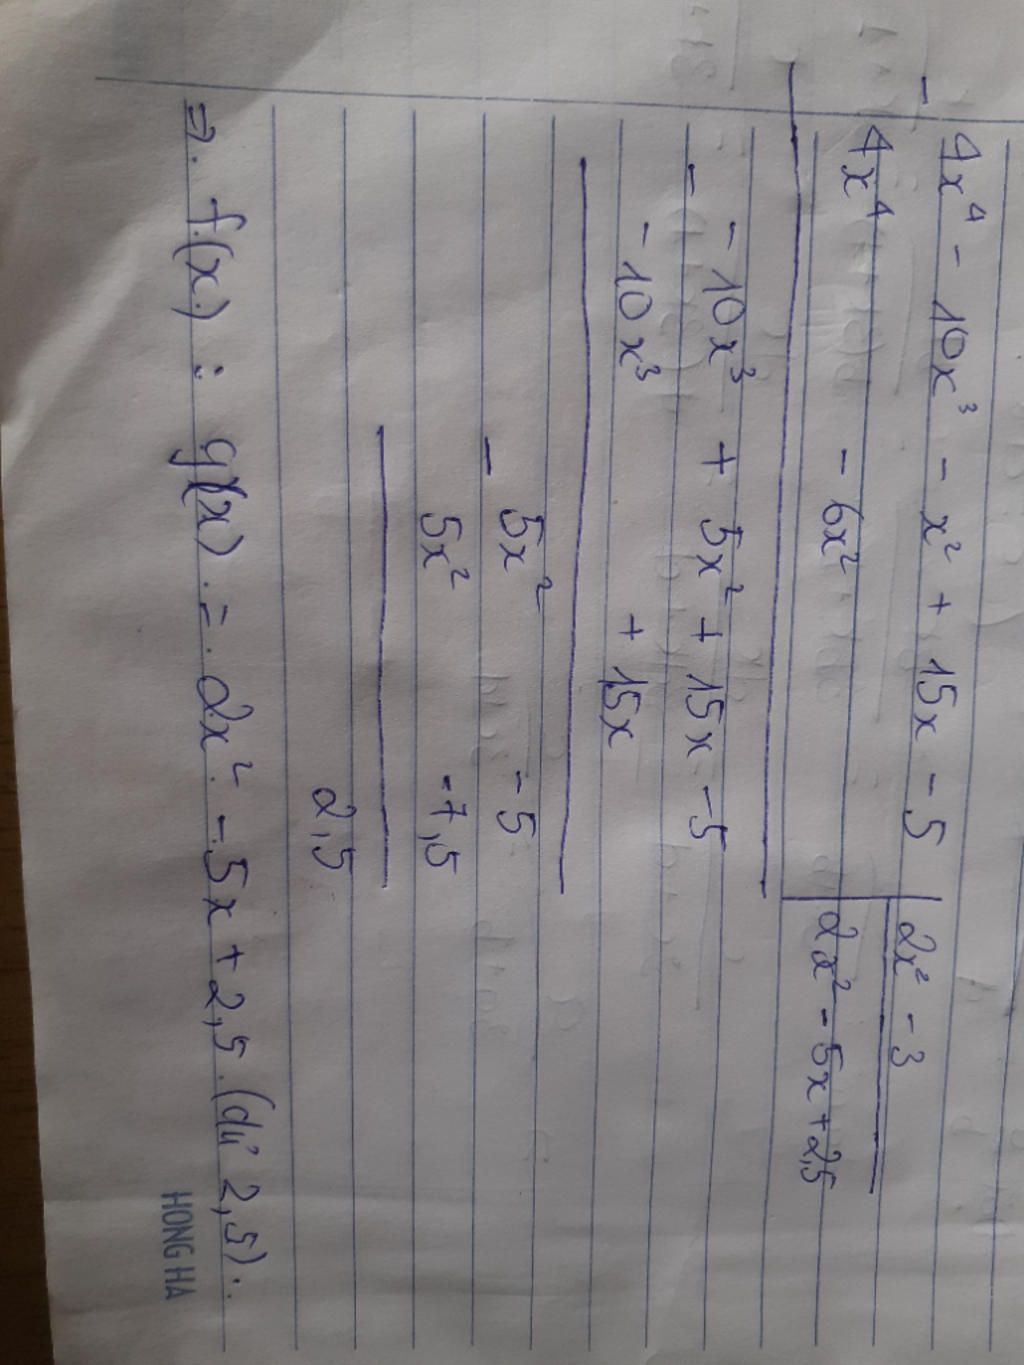 4x⁴ - 10x³ - x² + 15x - 5 | 2x² - 3
-
4x⁴ - 6x² | 2x² - 5x + 2,5
- 10x³ + 5x² + 15x - 5
-
- 10x³ + 15x
5x² - 5
-
5x² - 7,5
2,5
⇒ f(x) : g(x) = 2x² - 5x + 2,5 (dư 2,5).
HONG HA